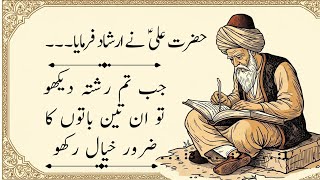 حضرت علیؑ نے ارشاد فرمایا۔۔۔
جب تم رشتہ دیکھو
تو ان تین باتوں کا
ضرور خیال رکھو